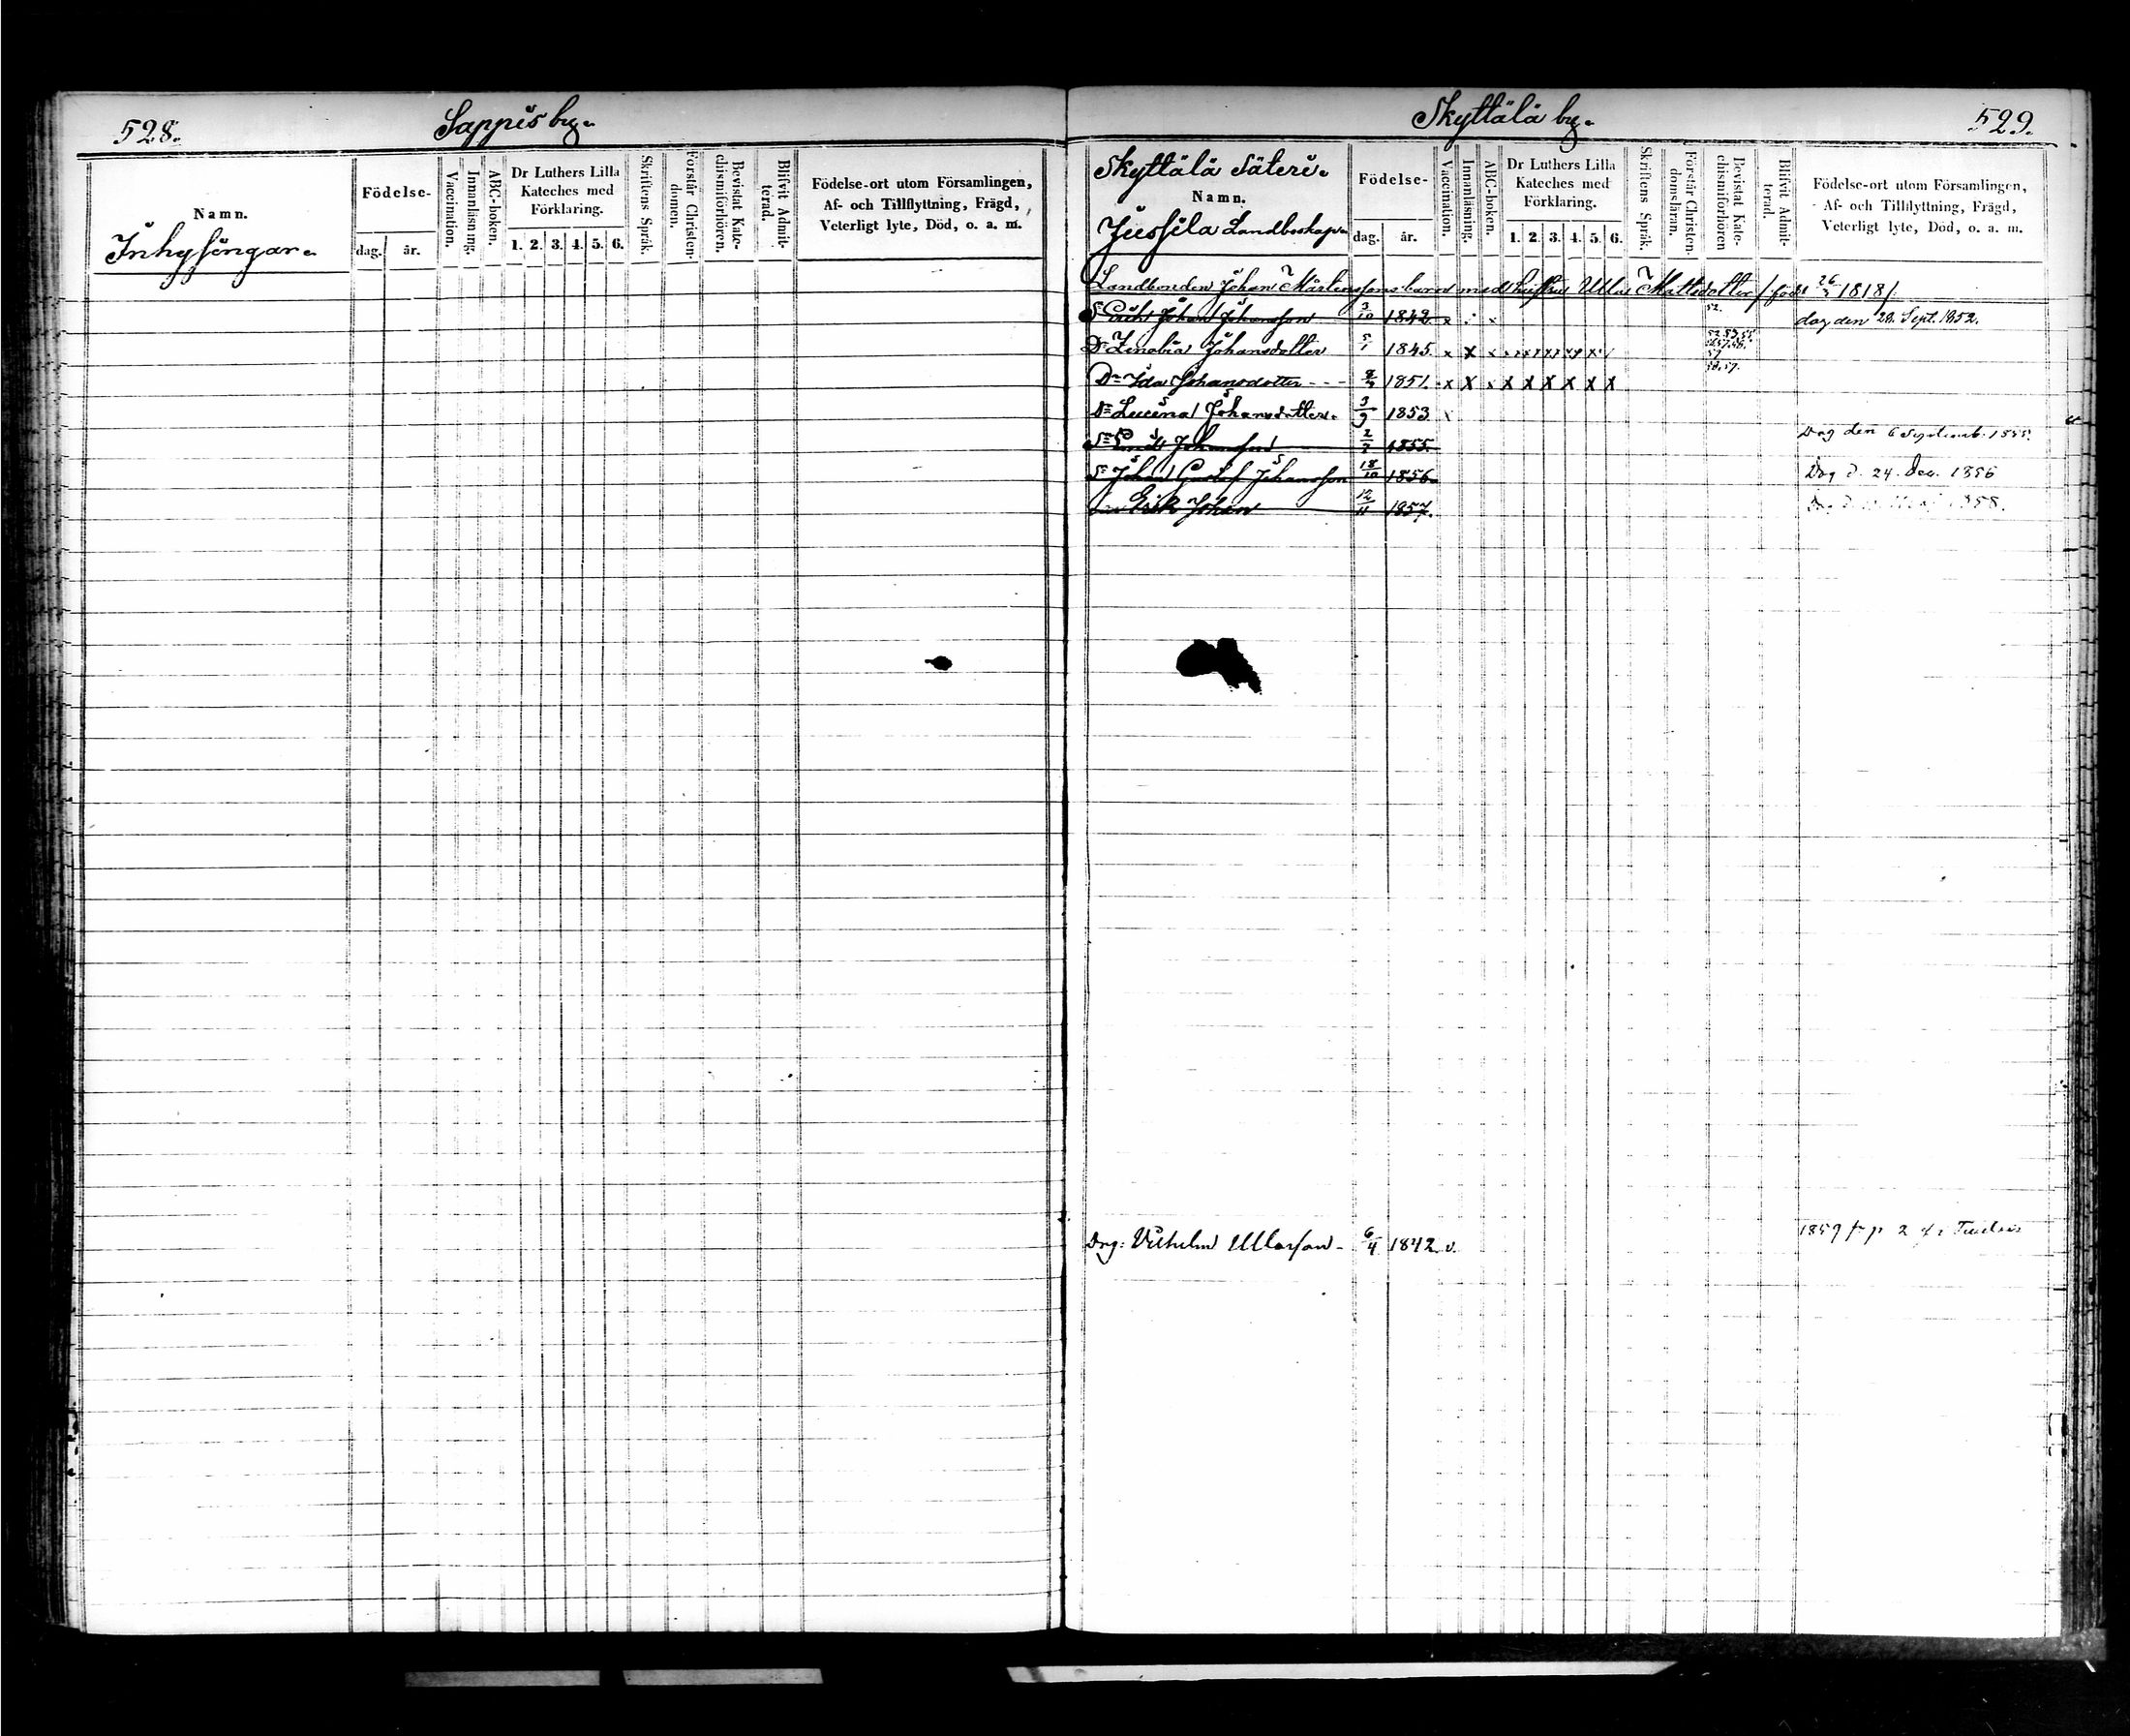 528.
Sappis by.
Namn.
Inhysingar.
Födelse-
dag. år.
Vaccination.
Innanläsning.
ABC-boken.
Dr Luthers Lilla
Kateches med
Förklaring.
1. 2. 3. 4. 5. 6.
Skriftens Språk.
Förstår Christen-
domen.
Bevistat Kate-
chismiförhören.
Blifvit Admit-
terad.
Födelse-ort utom Församlingen,
Af- och Tillflyttning, Frägd,
Veterligt lyte, Död, o. a. m.
Skyttälä by.
529.
Skyttälä Säteri.
Namn.
Jussila Landboskap.
Födelse-
dag. år.
Vaccination.
Innanläsning.
ABC-boken.
Dr Luthers Lilla
Kateches med
Förklaring.
1. 2. 3. 4. 5. 6.
Skriftens Språk.
Förstår Christen-
domsläran.
Bevistat Kate-
chismiförhören
Blifvit Admit-
terad.
Födelse-ort utom Församlingen,
Af- och Tillflyttning, Frägd,
Veterligt lyte, Död, o. a. m.
Landbonden Johan Mårtenssons barn med hustru Ulla Mattsdotter /född 1818/
Sn Erik Johan Johansson 3/10 1842. x 52. dog den 28. Sept. 1852.
Dr Zenobia Johansdotter 5/1 1845. x x x x x x x x
Dr Ida Johansdotter 1851. x x x x x x x x x
Dr Lucina Johansdotter. 3/9 1853
Sn Johansson 1855. Dog den 6 Septemb. 1855.
Sn Johan Gustaf Johansson 18/10 1856. Dog d. 24. dec. 1856
Erik Johan 12/11 1857. 1858.
Drg: Vilhelm Ullasson 6/4 1842. v. 1859